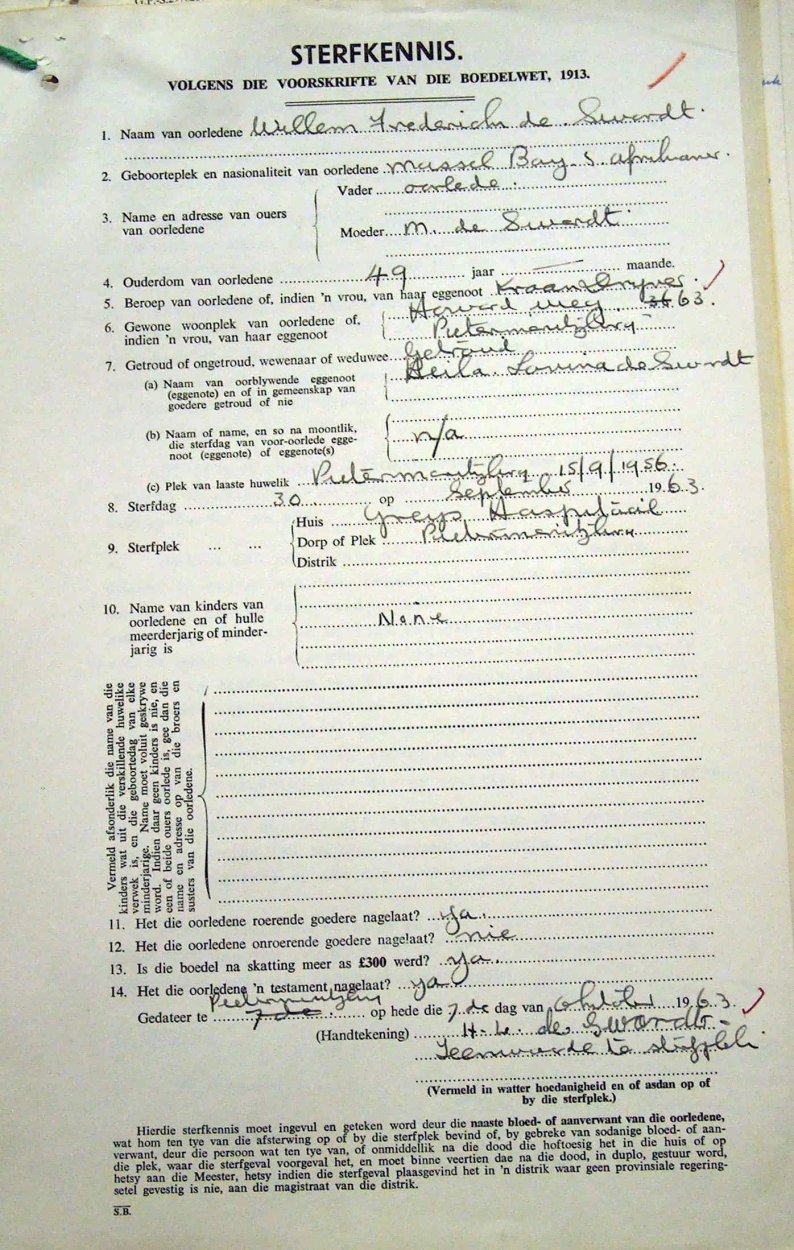 STERFKENNIS.
VOLGENS DIE VOORSKRIFTE VAN DIE BOEDELWET, 1913.
1. Naam van oorledene Willem Frederich de Swardt.
2. Geboorteplek en nasionaliteit van oorledene Mossel Bay. S. Afrikaner.
3. Name en adresse van ouers van oorledene
Vader oorlede.
Moeder M. de Swardt.
4. Ouderdom van oorledene 49 jaar — maande.
5. Beroep van oorledene of, indien 'n vrou, van haar eggenoot Kraandrywer.
6. Gewone woonplek van oorledene of, indien 'n vrou, van haar eggenoot
Howard weg. 36 63.
Pietermaritzburg
7. Getroud of ongetroud, wewenaar of weduwee Getroud
(a) Naam van oorblywende eggenoot
(eggenote) en of in gemeenskap van
goedere getroud of nie
Heila Lovina de Swardt
(b) Naam of name, en so na moontlik,
die sterfdag van voor-oorlede egge-
noot (eggenote) of eggenote(s)
n/a
(c) Plek van laaste huwelik Pietermaritzburg 15/9/1956.
8. Sterfdag 30 op September 1963.
9. Sterfplek ... ...
Huis Greys Hospitaal
Dorp of Plek Pietermaritzburg
Distrik
10. Name van kinders van
oorledene en of hulle
meerderjarig of minder-
jarig is
None
Vermeld afsonderlik die name van die
kinders wat uit die verskillende huwelike
verwek is, en die geboortedag van elke
minderjarige. Name moet voluit geskrywe
word. Indien daar geen kinders is nie, en
een of beide ouers oorlede is, gee dan die
name en adresse op van die broers en
susters van die oorledene.
11. Het die oorledene roerende goedere nagelaat? Ya.
12. Het die oorledene onroerende goedere nagelaat? nie
13. Is die boedel na skatting meer as £300 werd? Ya.
14. Het die oorledene 'n testament nagelaat? Ya
Pietermaritzburg
Gedateer te 7de op hede die 7de dag van Oktober 1963.
(Handtekening) H. L. de Swardt
Teenwoordig te sterfplek.
(Vermeld in watter hoedanigheid en of asdan op of
by die sterfplek.)
Hierdie sterfkennis moet ingevul en geteken word deur die naaste bloed- of aanverwant van die oorledene,
wat hom ten tye van die afsterwing op of by die sterfplek bevind of, by gebreke van sodanige bloed- of aan-
verwant, deur die persoon wat ten tye van, of onmiddellik na die dood die hoftoesig het in die huis of op
die plek, waar die sterfgeval voorgeval het, en moet binne veertien dae na die dood, in duplo, gestuur word,
hetsy aan die Meester, hetsy indien die sterfgeval plaasgevind het in 'n distrik waar geen provinsiale regering-
setel gevestig is nie, aan die magistraat van die distrik.
S.B.